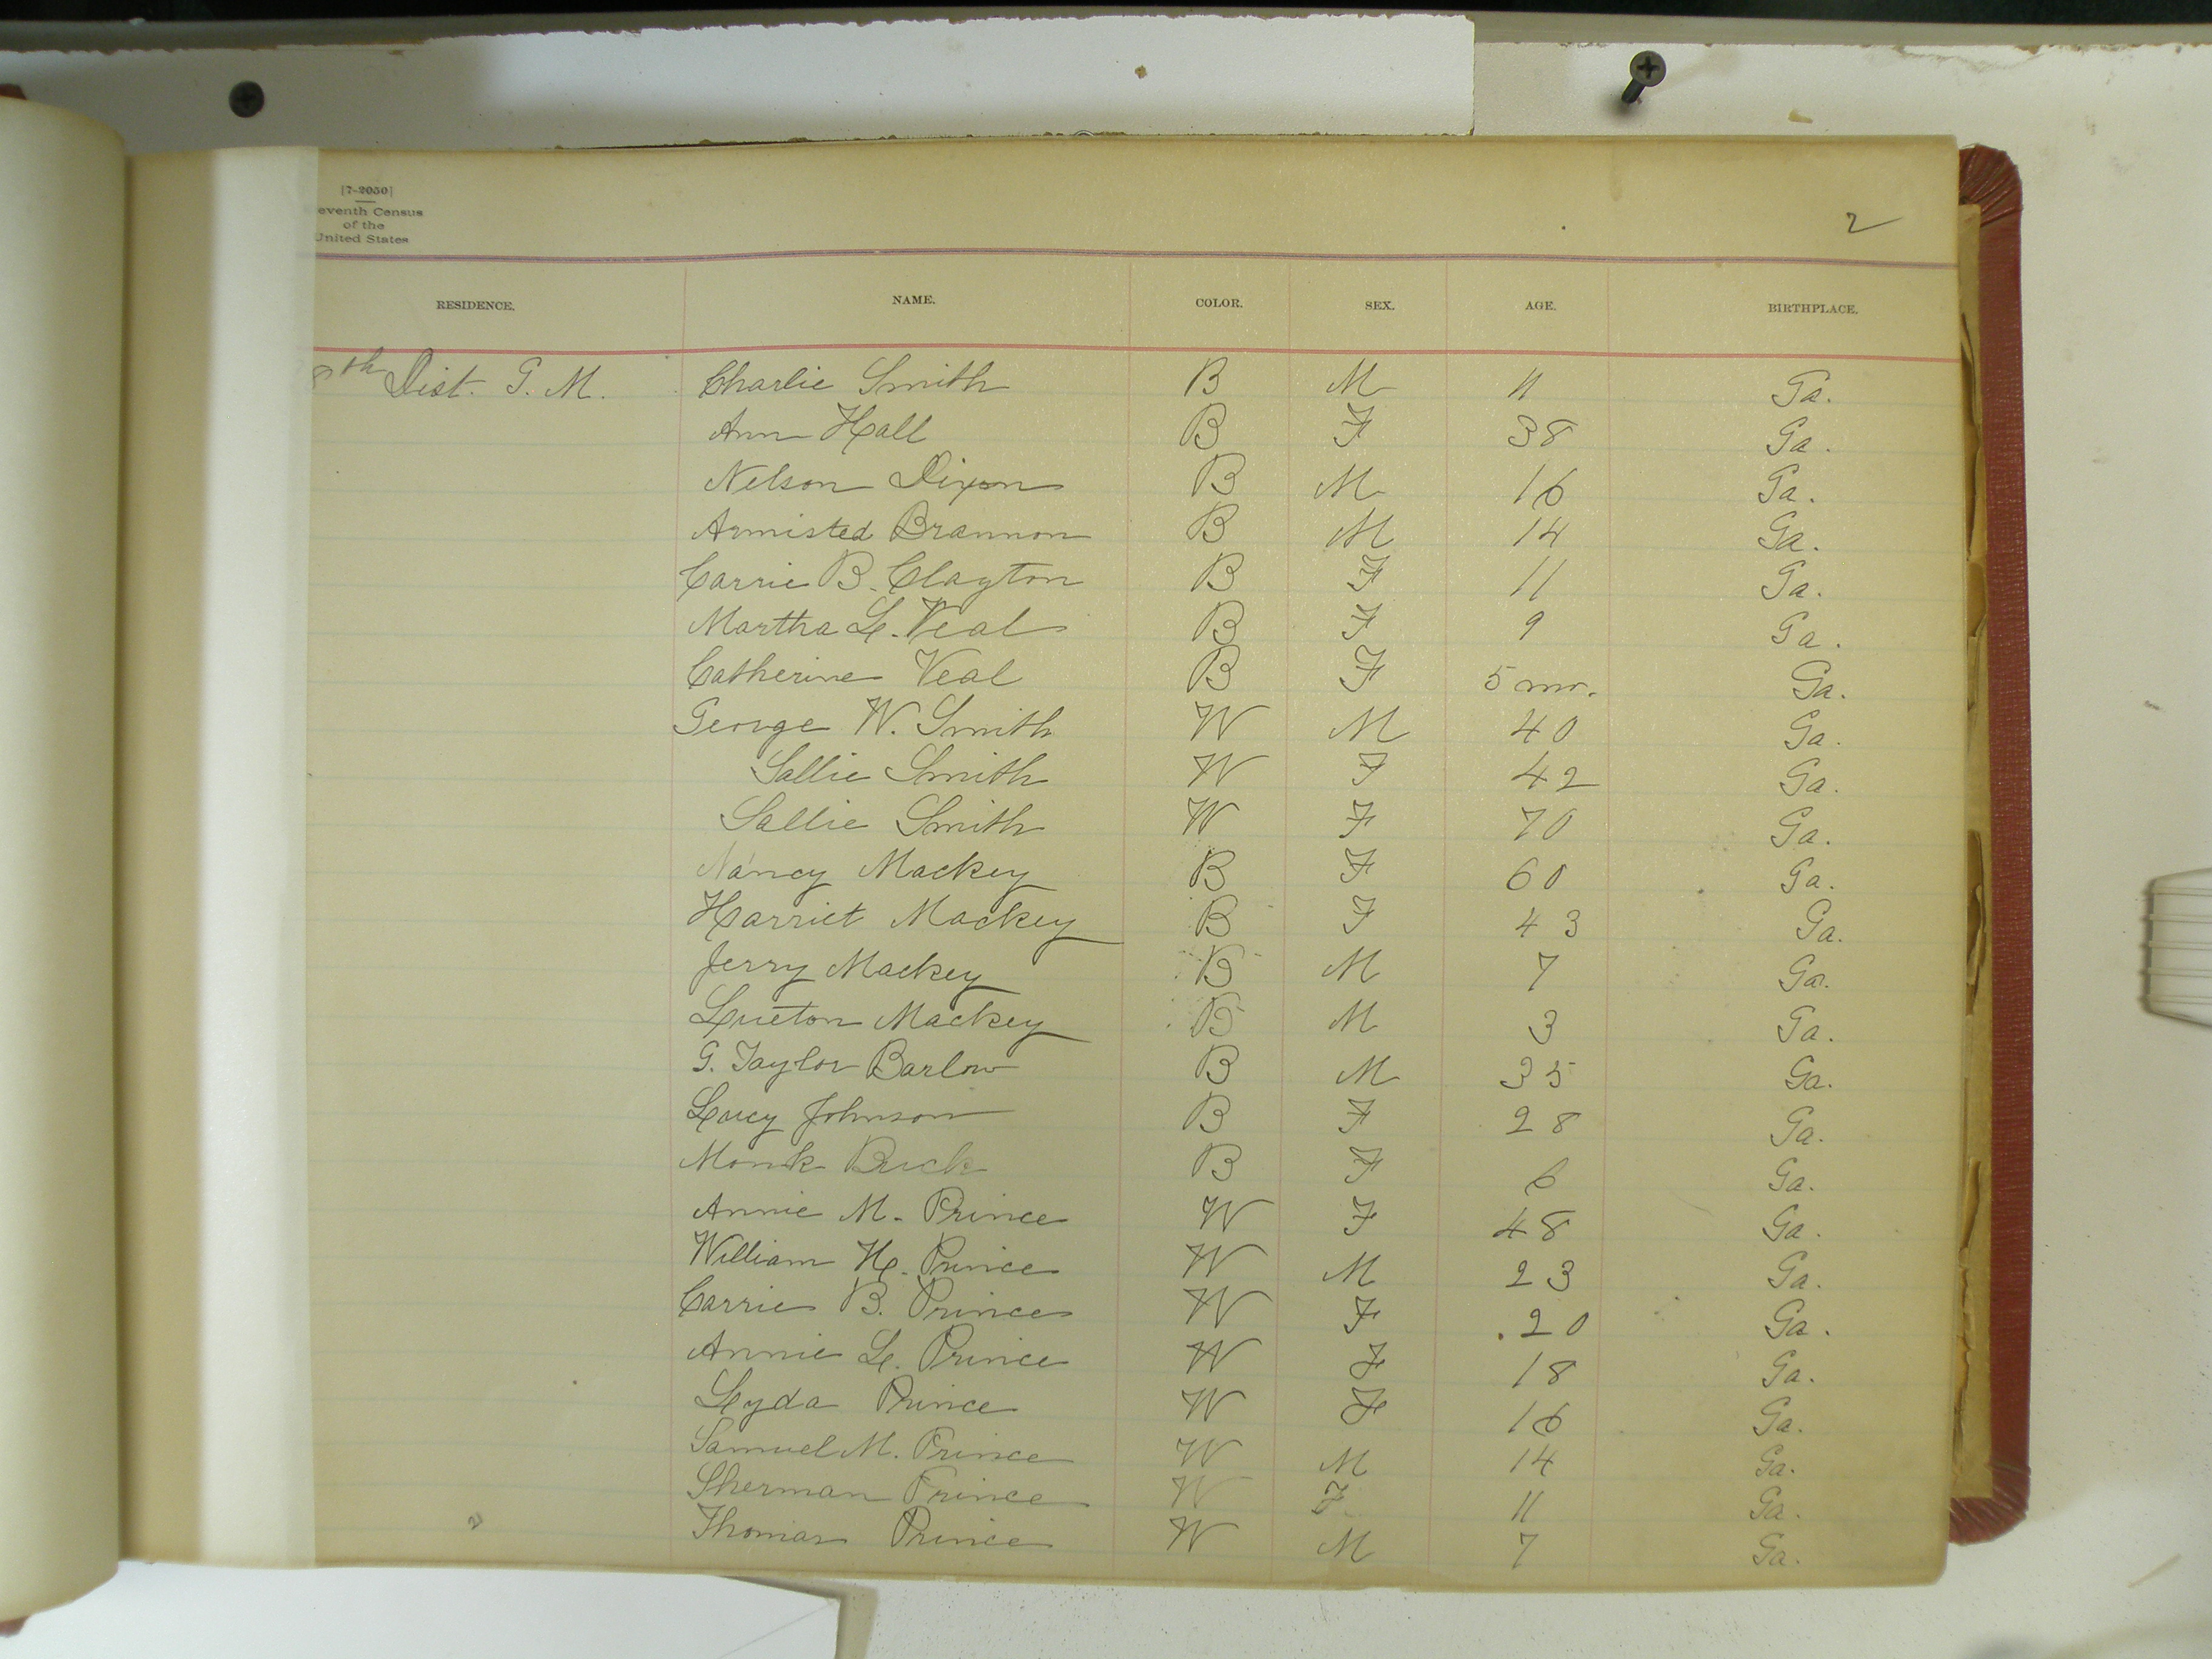 [7-2050]
eventh Census
of the
United States
2
RESIDENCE. NAME. COLOR. SEX. AGE. BIRTHPLACE.
8th Dist. G. M. Charlie Smith B M 11 Ga.
Ann Hall B F 38 Ga.
Nelson Dixon B M 16 Ga.
Armisted Brannon B M 14 Ga.
Carrie B. Clayton B F 11 Ga.
Martha L. Veal B F 9 Ga.
Catherine Veal B F 5 mo. Ga.
George W. Smith W M 40 Ga.
Sallie Smith W F 42 Ga.
Sallie Smith W F 70 Ga.
Nancy Mackey B F 60 Ga.
Harriet Mackey B F 43 Ga.
Jerry Mackey B M 7 Ga.
Mackey B M 3 Ga.
G. Taylor Barlow B M 35 Ga.
Lucy Johnson B F 28 Ga.
Monk Buck B F 6 Ga.
Annie M. Prince W F 48 Ga.
William H. Prince W M 23 Ga.
Carrie B. Prince W F 20 Ga.
Annie L. Prince W F 18 Ga.
Lyda Prince W F 16 Ga.
Samuel M. Prince W M 14 Ga.
Sherman Prince W F 11 Ga.
Thomas Prince W M 7 Ga.